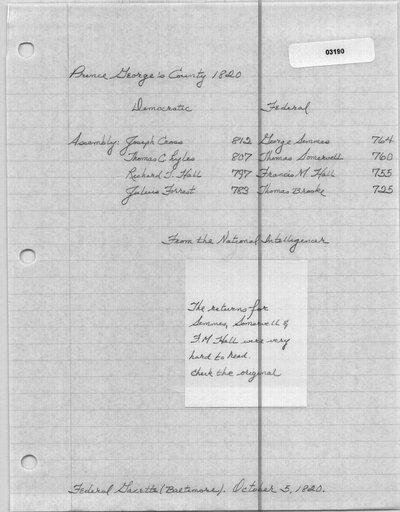 03190
Prince George's County 1820
Democratic Federal
Assembly: Joseph Cross 812 George Semmes 764
Thomas C Lyles 807 Thomas Somervell 760
Richard T. Hall 797 Francis M. Hall 755
Julius Forrest 783 Thomas Brooke 725
From the National Intelligencer
The returns for
Semmes, Somervell &
F.M Hall were very
hard to read.
Check the original
Federal Gazette (Baltimore). October 5, 1820.